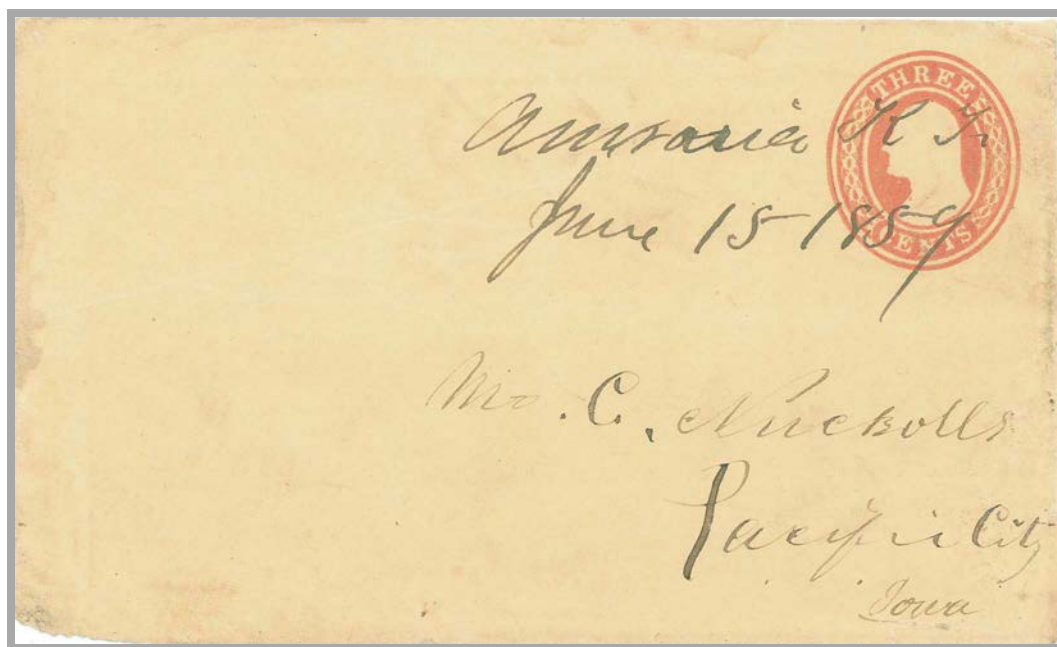 THREE
Auraria K. T.
June 15 1859
CENTS
Mr. C. Nuckolls
Pacific City
Iowa